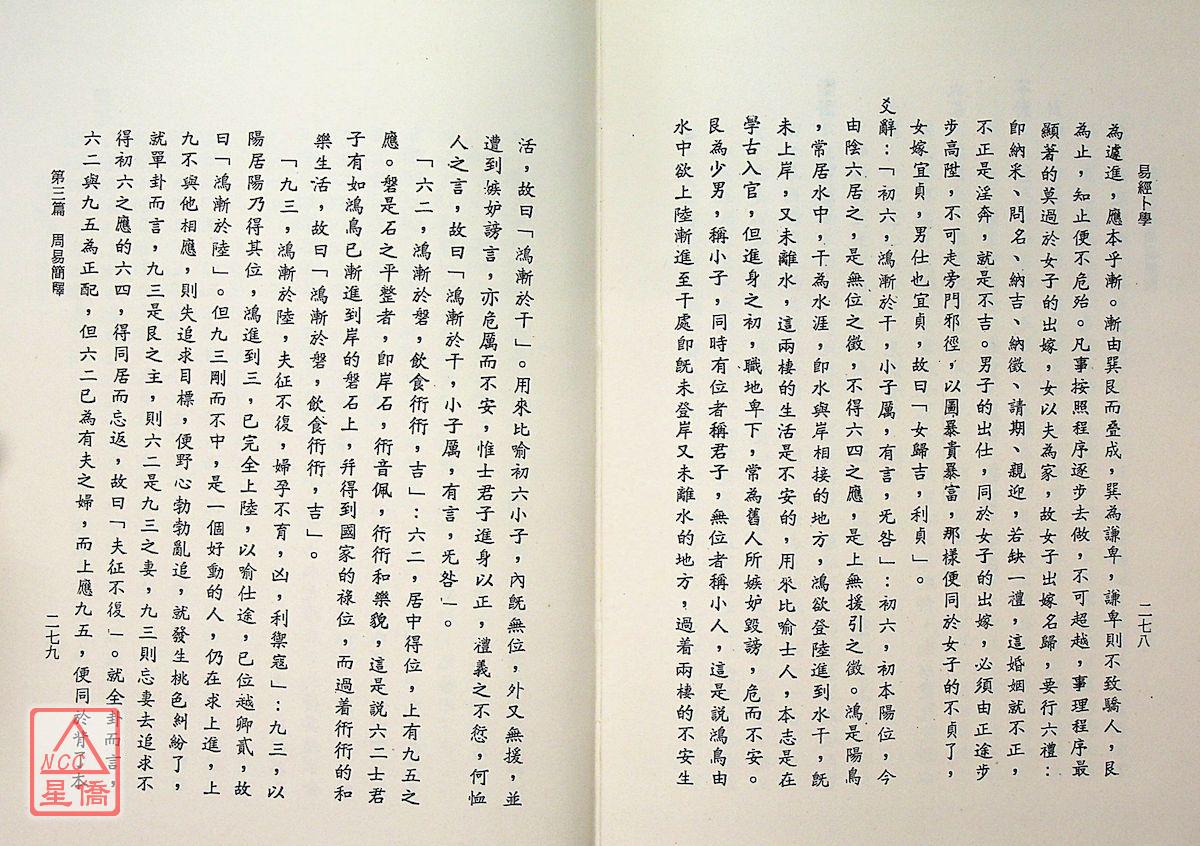 易經卜學
二七八
為遽進，應本乎漸。漸由巽艮而叠成，巽為謙卑，謙卑則不致驕人，艮
為止，知止便不危殆。凡事按照程序逐步去做，不可超越，事理程序最
顯著的莫過於女子的出嫁，女以夫為家，故女子出嫁名歸，要行六禮：
即納采、問名、納吉、納徵、請期、親迎，若缺一禮，這婚姻就不正，
不正是淫奔，就是不吉。男子的出仕，同於女子的出嫁，必須由正途步
步高陞，不可走旁門邪徑，以圖暴貴暴富，那樣便同於女子的不貞了，
女嫁宜貞，男仕也宜貞，故曰「女歸吉，利貞」。
爻辭：「初六，鴻漸於干，小子厲，有言，旡咎」：初六，初本陽位，今
由陰六居之，是無位之徵，不得六四之應，是上無援引之徵。鴻是陽鳥
，常居水中，干為水涯，即水與岸相接的地方，鴻欲登陸進到水干，旣
未上岸，又未離水，這兩棲的生活是不安的，用來比喻士人，本志是在
學古入官，但進身之初，職地卑下，常為舊人所嫉妒毀謗，危而不安。
艮為少男，稱小子，同時有位者稱君子，無位者稱小人，這是說鴻鳥由
水中欲上陸漸進至干處即旣未登岸又未離水的地方，過着兩棲的不安生
活，故曰「鴻漸於干」。用來比喻初六小子，內旣無位，外又無援，並
遭到嫉妒謗言，亦危厲而不安，惟士君子進身以正，禮義之不愆，何恤
人之言，故曰「鴻漸於干，小子厲，有言，旡咎」。
「六二，鴻漸於磐，飲食衎衎，吉」：六二，居中得位，上有九五之
應。磐是石之平整者，即岸石，衎音佩，衎衎和樂貌，這是說六二士君
子有如鴻鳥已漸進到岸的磐石上，幷得到國家的祿位，而過着衎衎的和
樂生活，故曰「鴻漸於磐，飲食衎衎，吉」。
「九三，鴻漸於陸，夫征不復，婦孕不育，凶，利禦寇」：九三，以
陽居陽乃得其位，鴻進到三，已完全上陸，以喻仕途，已位越卿貳，故
曰「鴻漸於陸」。但九三剛而不中，是一個好動的人，仍在求上進，上
九不與他相應，則失追求目標，便野心勃勃亂追，就發生桃色糾紛了，
就單卦而言，九三是艮之主，則六二是九三之妻，九三則忘妻去追求不
得初六之應的六四，得同居而忘返，故曰「夫征不復」。就全卦而言，
六二與九五為正配，但六二已為有夫之婦，而上應九五，便同於背了本
第三篇 周易簡釋
二七九
NCC
星僑